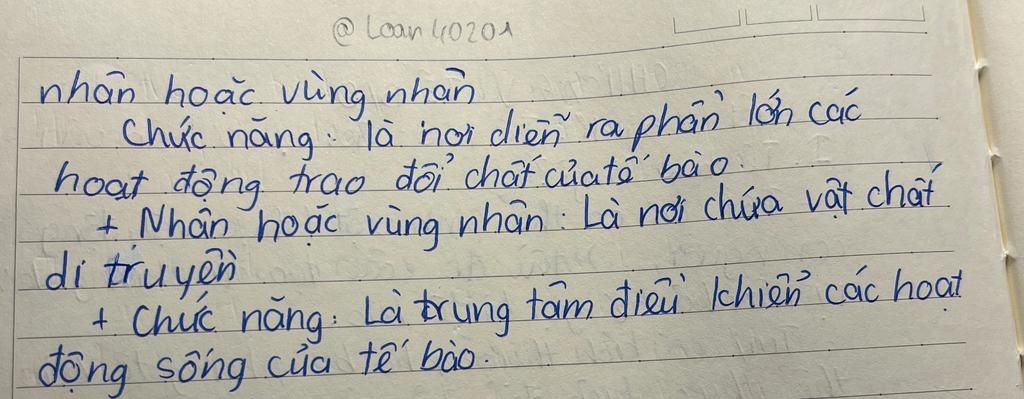 @Loan40201
nhân hoặc vùng nhân
Chức năng: là nơi diễn ra phần lớn các
hoạt động trao đổi chất của tế bào.
+ Nhân hoặc vùng nhân: Là nơi chứa vật chất
di truyền
+ Chức năng: Là trung tâm điều khiển các hoạt
động sống của tế bào.